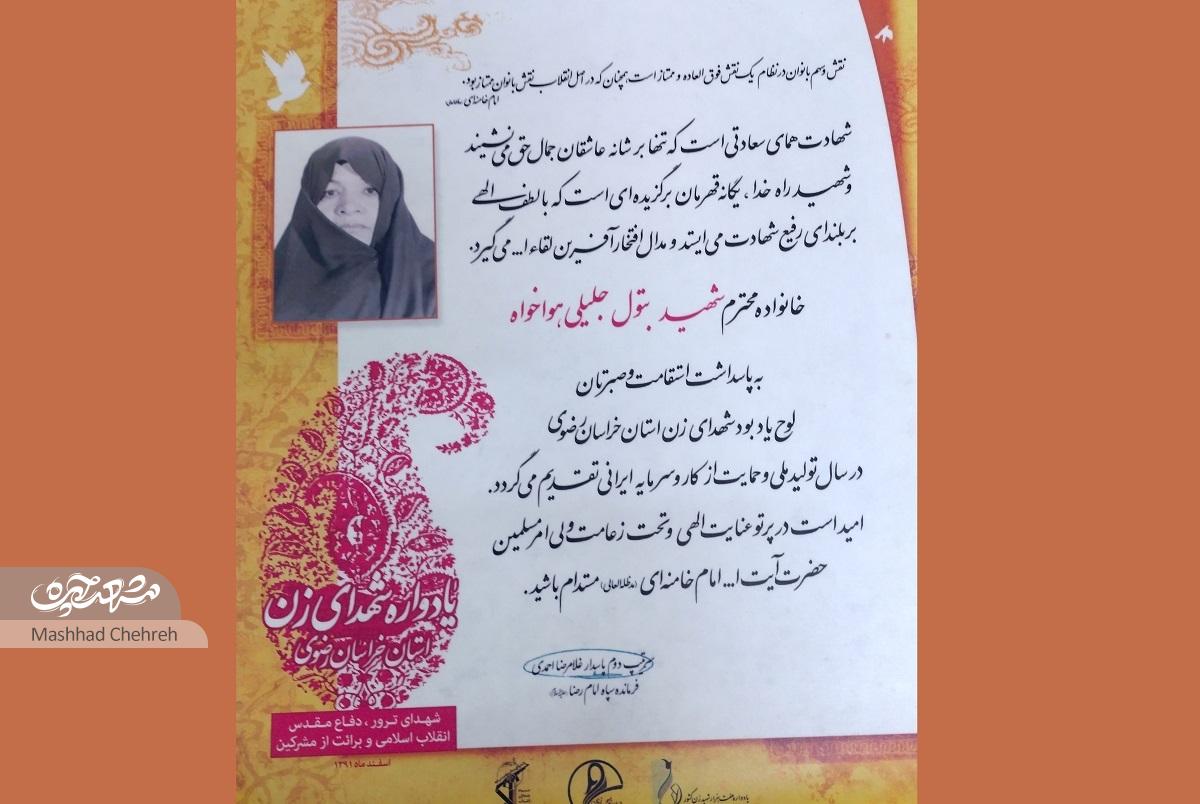 نقش و سهم بانوان در نظام یک نقش فوق العاده و ممتاز است همچنان که در اصل انقلاب نقش بانوان ممتاز بود.
امام خامنه‌ای
شهادت همای سعادتی است که تنها بر شانه عاشقان جمال حق می‌نشیند
و شهید راه خدا، یگانه قهرمان برگزیده‌ای است که با لطف الهی
بر بلندای رفیع شهادت می‌ایستد و مدال افتخارآفرین لقاء ا... می‌گیرد.
خانواده محترم شهید بتول جلیلی هواخواه
به پاسداشت استقامت و صبرتان
لوح یادبود شهدای زن استان خراسان رضوی
در سال تولید ملی و حمایت از کار و سرمایه ایرانی تقدیم می‌گردد.
امید است در پرتو عنایت الهی و تحت زعامت ولی امر مسلمین
حضرت آیت ا... امام خامنه‌ای (مدظله‌العالی) مستدام باشید.
سرتیپ دوم پاسدار غلامرضا احمدی
فرمانده سپاه امام رضا
یادواره شهدای زن
استان خراسان رضوی
شهدای ترور، دفاع مقدس
انقلاب اسلامی و برائت از مشرکین
اسفند ماه ۱۳۹۱
شهرچهره
Mashhad Chehreh